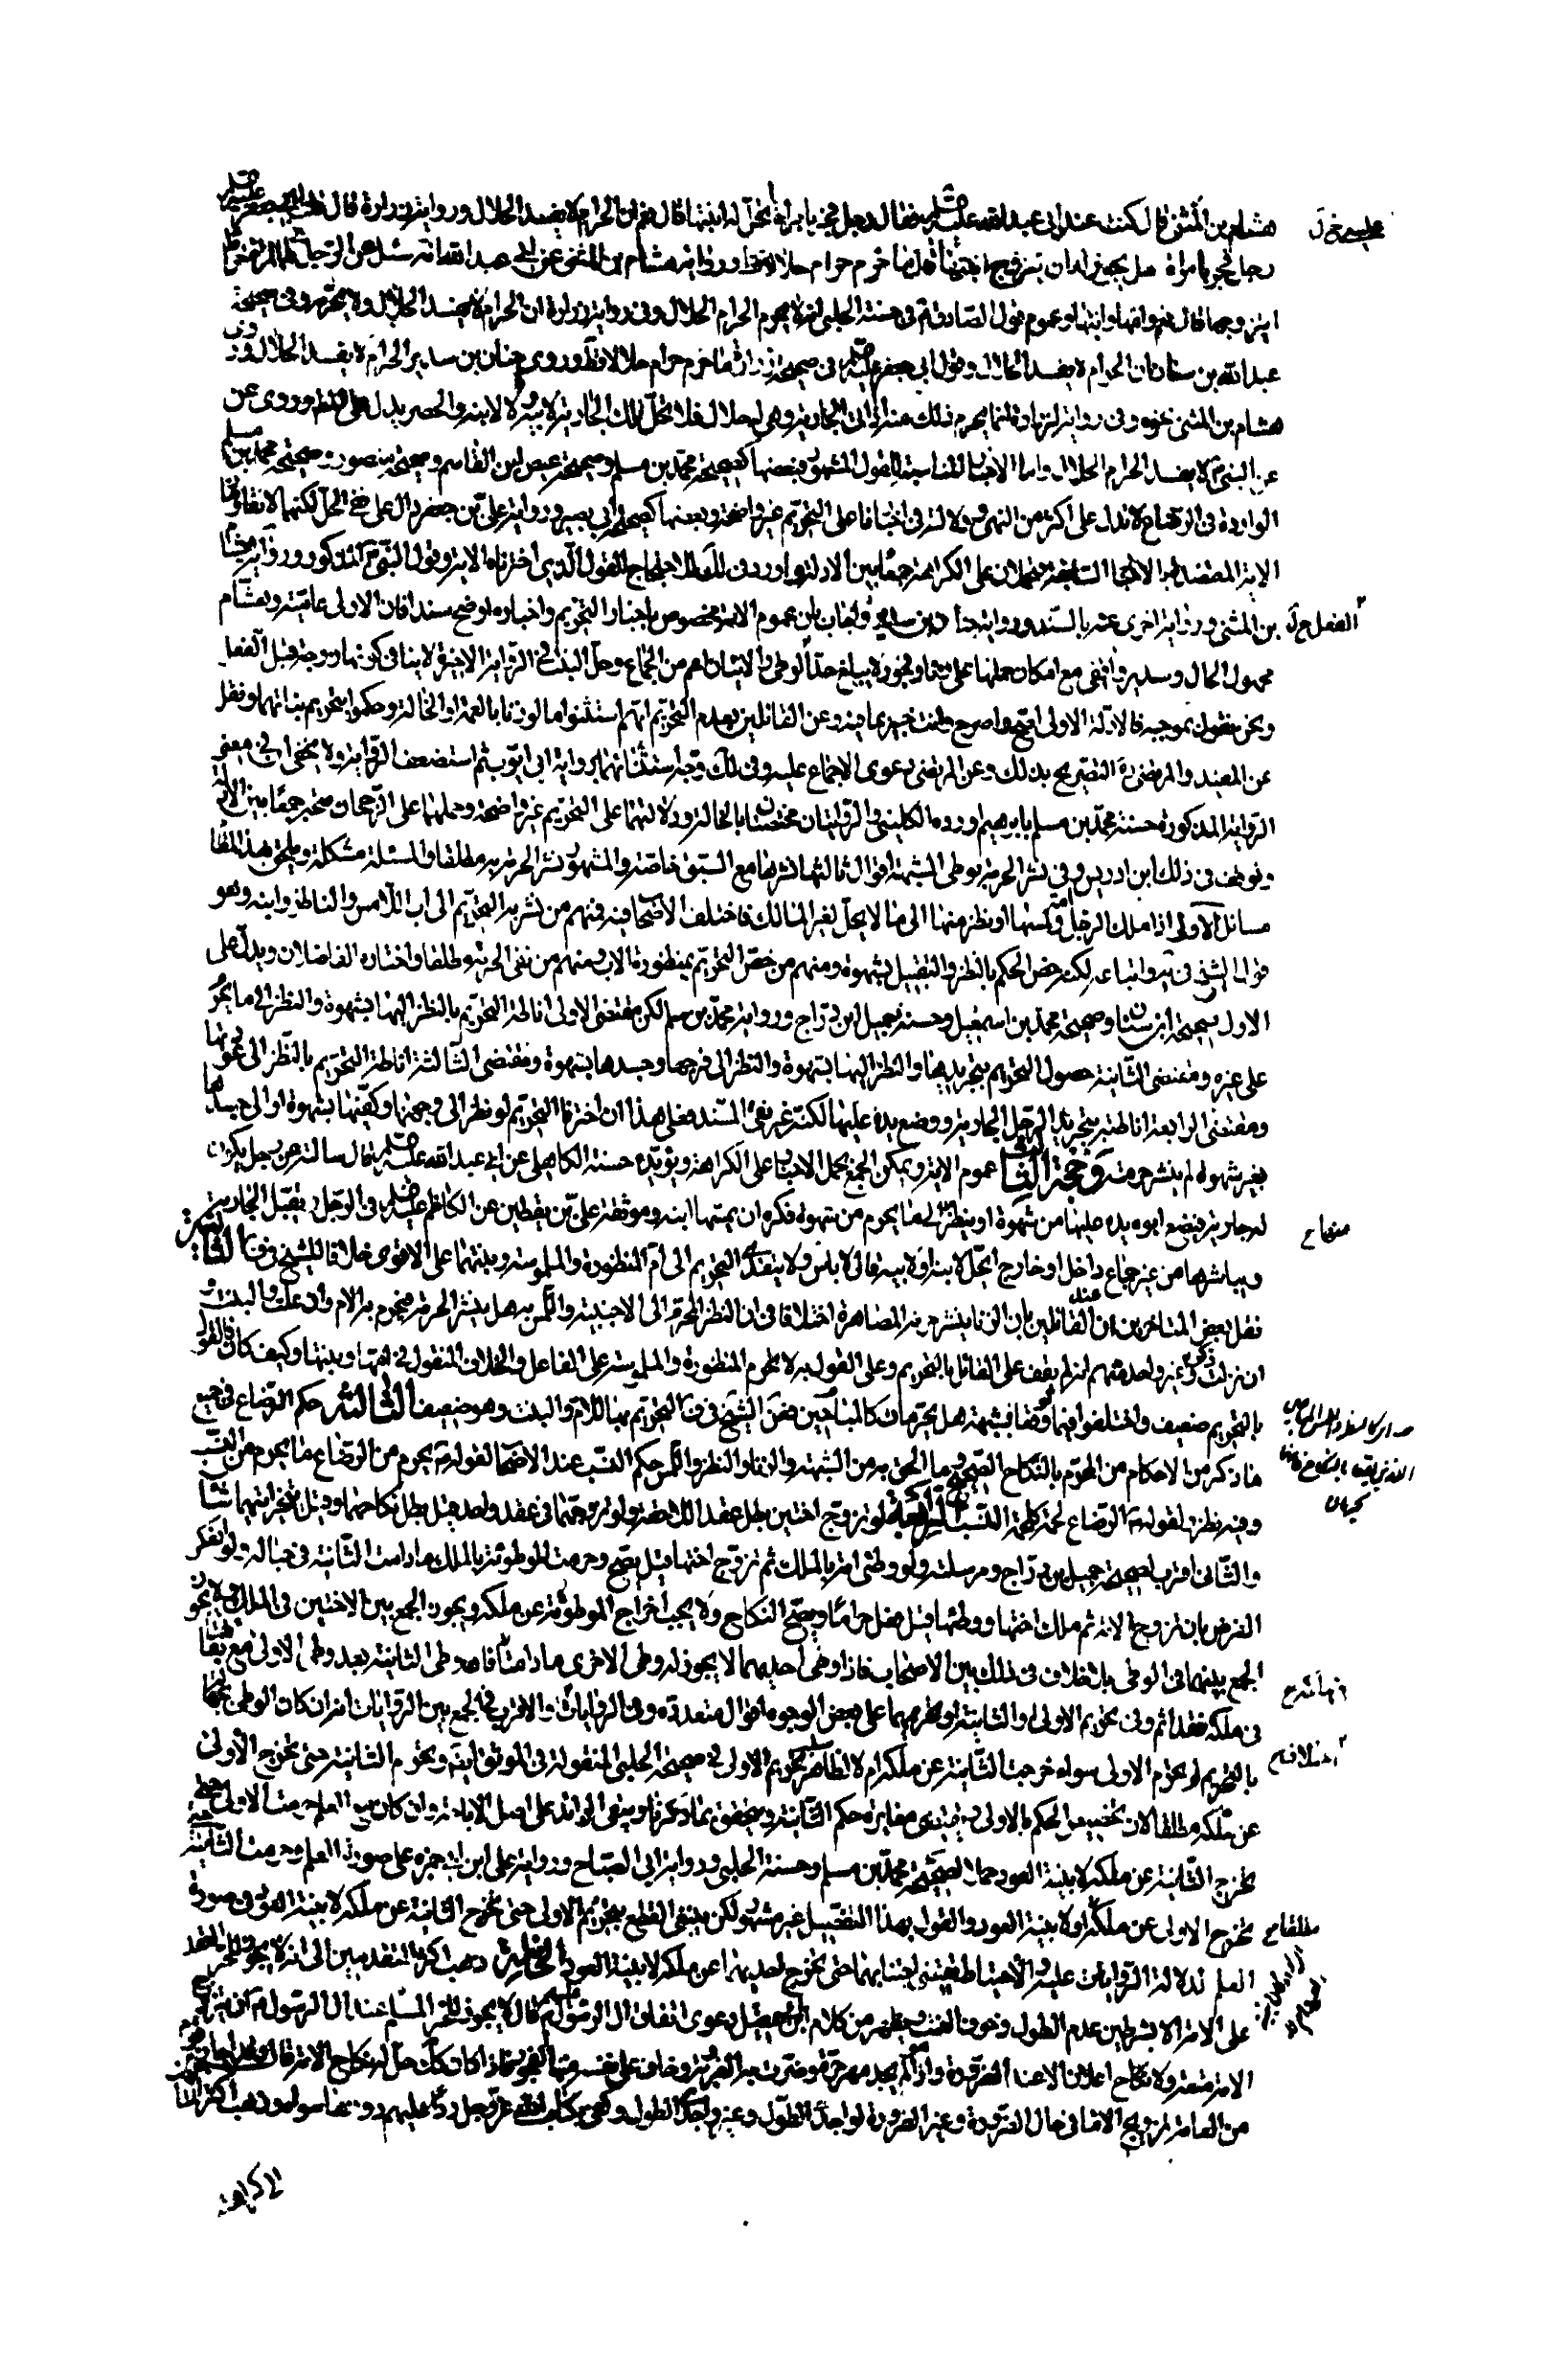 هشام بن المثنى قال كنت عند ابى عبد الله عليه السلام فقال له رجل فجر بامراة يحل له ابنتها قال نعم ان الحرام لا يفسد الحلال ورواية زرارة قال قلت لابى جعفر عليه السلام
رجل فجر بامراة هل يجوز له ان يتزوج ابنتها قال ما حرم حرام حلالا قط ورواية هشام بن المثنى عن ابى عبد الله انه سئل عن الرجل
ايتزوجها قال نعم وامها وابنتها وعموم قول الصادق فى حسنة الحلبى انه لا يحرم الحرام الحلال وفى رواية زرارة ان الحرام لا يفسد الحلال ولا يحرمه وفى صحيحة
عبد الله بن سنان ان الحرام لا يفسد الحلال وقول ابى جعفر عليه السلام فى صحيحة زرارة ما حرم حرام حلالا قط وروى حنان بن سدير الحرام لا يفسد الحلال وروى
هشام بن المثنى نحوه وفى رواية لزرارة انما يحرم ذلك منه اذا اتى الجارية وهى له حلال فلا تحل تلك الجارية لابيه ولا لابنه والحصر يدل على وروى عن
عن النبى لا يفسد الحرام الحلال واما الاخبار المناسبة للقول المشهور فبعضها كصحيحة محمد بن مسلم وصحيحة عيص ابن القاسم وصحيحة منصور وصحيحة محمد بن مسلم
الواردة فى الرضاع لا تدل على اكثر من النهى ودلالته فى اخبارنا على التحريم غير واضحة وبعضها كصحيحة ابى بصير ورواية على بن جعفر دال على نفى الحل لكنها لا تقاوم
الاية المعتضدة بالاخبار السابقة فتحملان على الكراهة جمعا بين الادلة واورد فى الاحتجاج للقول الذى اخترناه الاية وقول النبى المذكور ورواية هشام
بن المثنى ورواية اخرى عنه بالسند ورواية حنان بن سدير واجاب بان عموم الاية مخصوص باخبار التحريم واخباره اوضح سندا فان الاولى عامية وهشام
مجهول الحال وسدير واقفى مع امكان حملها على فجور لا يبلغ حد الوطى والاتيان اعم من الجماع وحل البنت فى الرواية الاخيرة لا ينافى كونها زوجة قبل الفعل
ونحن نقول بموجبه فالادلة الاولى اصح واصرح وانت خبير بما فيه وعن القائلين بعدم التحريم انهم استثنوا ما لو زنا بالعمة او الخالة وحكموا بتحريم بناتهما ونقل
عن المفيد والمرتضى التصريح بذلك وعن المرتضى دعوى الاجماع عليه وفى ذلك وجه استثنائهما برواية ابى ايوب ثم استضعف الرواية ولا يخفى ان فى معنى
الرواية المذكورة حسنة محمد بن مسلم بابرهيم اورده الكلينى والروايتان مختصتان بالخالة ودلالتهما على التحريم غير واضحة وحملهما على الرجحان متجه جمعا بين الادلة
وتوقف فى ذلك ابن ادريس وفى نشر الحرمة بوطى الشبهة اقوال ثالثها نشرها مع السبق خاصة والمشهور نشر الحرمة به مطلقا والمسئلة مشكلة ويلحق بهذا المقام
مسائل الاولى اذا ملك الرجل امة ولمسها او نظر منها الى ما لا يحل لغير المالك فاختلف الاصحاب فيه فمنهم من نشر به التحريم الى اب اللامس والناظر وابنه وهو
قول الشيخ فى واتباعه لكنه خص الحكم بالنظر والتقبيل بشهوة ومنهم من خص التحريم بمنظورة الاب ومنهم من نفى الحرمة مطلقا واختاره الفاضلان ويدل على
الاول صحيحة ابن سنان وصحيحة محمد بن اسمعيل وحسنة جميل ابن دراج ورواية محمد بن مسلم لكن مقتضى الاولى اناطة التحريم بالنظر اليها بشهوة والنظر الى ما يحرم
على غيره ومقتضى الثانية حصول التحريم بتجريدها والنظر اليها بشهوة والنظر الى فرجها وجسدها بشهوة ومقتضى الثالثة اناطة التحريم بالنظر الى عورتها
ومقتضى الرابعة اناطته بتجريد الرجل الجارية ووضع يده عليها لكنه غير نقى السند فعلى هذا ان اخترنا التحريم لو نظر الى وجهها وكفيها بشهوة او الى جسدها
بغير شهوة لم ينشر حرمة وحجة عموم الاية ويمكن الجمع بحمل الاخبار على الكراهة ويؤيده حسنة الكاهلى عن ابى عبد الله عليه السلام قال سالته عن رجل يكون
له جارية فيضع ابوه يده عليها من شهوة او ينظر الى ما يحرم من شهوة فكره ان يمسها ابنه وموثقة على بن يقطين عن الكاظم عليه السلام فى الرجل يقبل الجارية
ويباشرها من غير جماع داخل او خارج اتحل لابنه او لابيه قال لا باس ولا يتعدى التحريم الى ام المنظورة والملموسة وبنتهما على الاقوى خلافا للشيخ فى الثانية
نقل بعض المتاخرين ان عند القائلين بان الزنا ينشر حرمة المصاهرة اختلافا فى ان النظر المحرم الى الاجنبية واللمس هل ينشر الحرمة فيحرم به الام وان علت والبنت
ان نزلت وذكر غير واحد منهم انه لم يقف على القائل بالتحريم وعلى القول به لا تحرم المنظورة والملموسة على الفاعل والخلاف المنقول فى امها وبنتها وكيف كان فالقول
بالتحريم ضعيف واختلفوا فيما لو وقعا بشبهة هل يحرمان كالمباحين فعن الشيخ فى التحريم بهما للام والبنت وهو ضعيف الثالثة حكم الرضاع فى جميع
ما ذكر من الاحكام من المحرم بالنكاح الصحيح وما الحق به من الشبهة والزنا والنظر واللمس حكم النسب عند الاصحاب لقوله يحرم من الرضاع ما يحرم من النسب
وفيه نظر ولقوله الرضاع لحمة كلحمة النسب الرابعة لو تزوج اختين بطل عقد اللاحقة ولو تزوجهما فى عقد واحد قيل بطل نكاحهما وقيل يتخير ايتهما شاء
والثانى اقرب لصحيحة جميل بن دراج ومرسلته ولو وطئ امة بالملك ثم تزوج اختها قيل يصح وحرمت الموطوئة بالملك ما دامت الثانية فى حباله ولو انعكس
الفرض بان تزوج الامة ثم ملك اختها ووطئها قيل فعل حراما ويصح النكاح ولا يجب اخراج الموطوئة عن ملكه ويجوز الجمع بين الاختين فى الملك ولا يجوز
الجمع بينهما فى الوطى بلا خلاف فى ذلك بين الاصحاب فاذا وطى احديهما لا يجوز له وطى الاخرى ما دامتا فلو وطى الثانية بعد وطى الاولى مع بقائها
فى ملكه فقد اثم وفى تحريم الاولى او الثانية او تحريمهما على بعض الوجوه اقوال متعددة وفى الروايات والاقرب فى الجمع بين الروايات انه ان كان الوطى بجهل
بالتحريم لم تحرم الاولى سواء خرجت الثانية عن ملكه ام لا لظاهر تحريم الاولى فى صحيحة الحلبى المنقولة فى الموثق ايضا وتحرم الثانية حتى تخرج الاولى
عن ملكه مطلقا لان تخصيص الحكم بالاولى يقتضى مغايرة حكم الثانية ويتحقق بما ذكرنا ويبقى الزائد على اصل الاباحة وان كان مع العلم حرمت الاولى حتى
تخرج الثانية عن ملكه لا بنية العود حملا لصحيحة محمد بن مسلم وحسنة الحلبى ورواية ابى الصباح ورواية على ابن ابى حمزة على صورة العلم وحرمت الثانية
تخرج الاولى عن ملكه او لا بنية العود والقول بهذا التفصيل غير مشهور لكن ينبغى القطع بتحريم الاولى حتى تخرج الثانية عن ملكه لا بنية العود فى صورة
العلم لدلالة الروايات عليه والاحتياط يقتضى اجتنابهما حتى تخرج احديهما عن ملكه لا بنية العود الخامسة ذهب اكثر المتقدمين الى انه لا يجوز للحر العقد
على الامة الا بشرطين عدم الطول وخوف العنت ويظهر من كلام ابن ابى عقيل دعوى اتفاق ال الرسول قال لا يجوز للحر المسلم عند ال الرسول ان يتزوج
الامة متعة ولا نكاح اعلان الا عند الضرورة واذا لم يجد مهر حرة وضرت به العزبة وخاف على نفسه منها الفجور فاذا كان كذلك حل له نكاح الامة
من العامة تزويج الاماء فى حال الضرورة وغير الضرورة لواجد الطول وغير واجد الطول وكفى بكتاب الله عز وجل ردا عليهم دون ما سواه وذهب اكثر